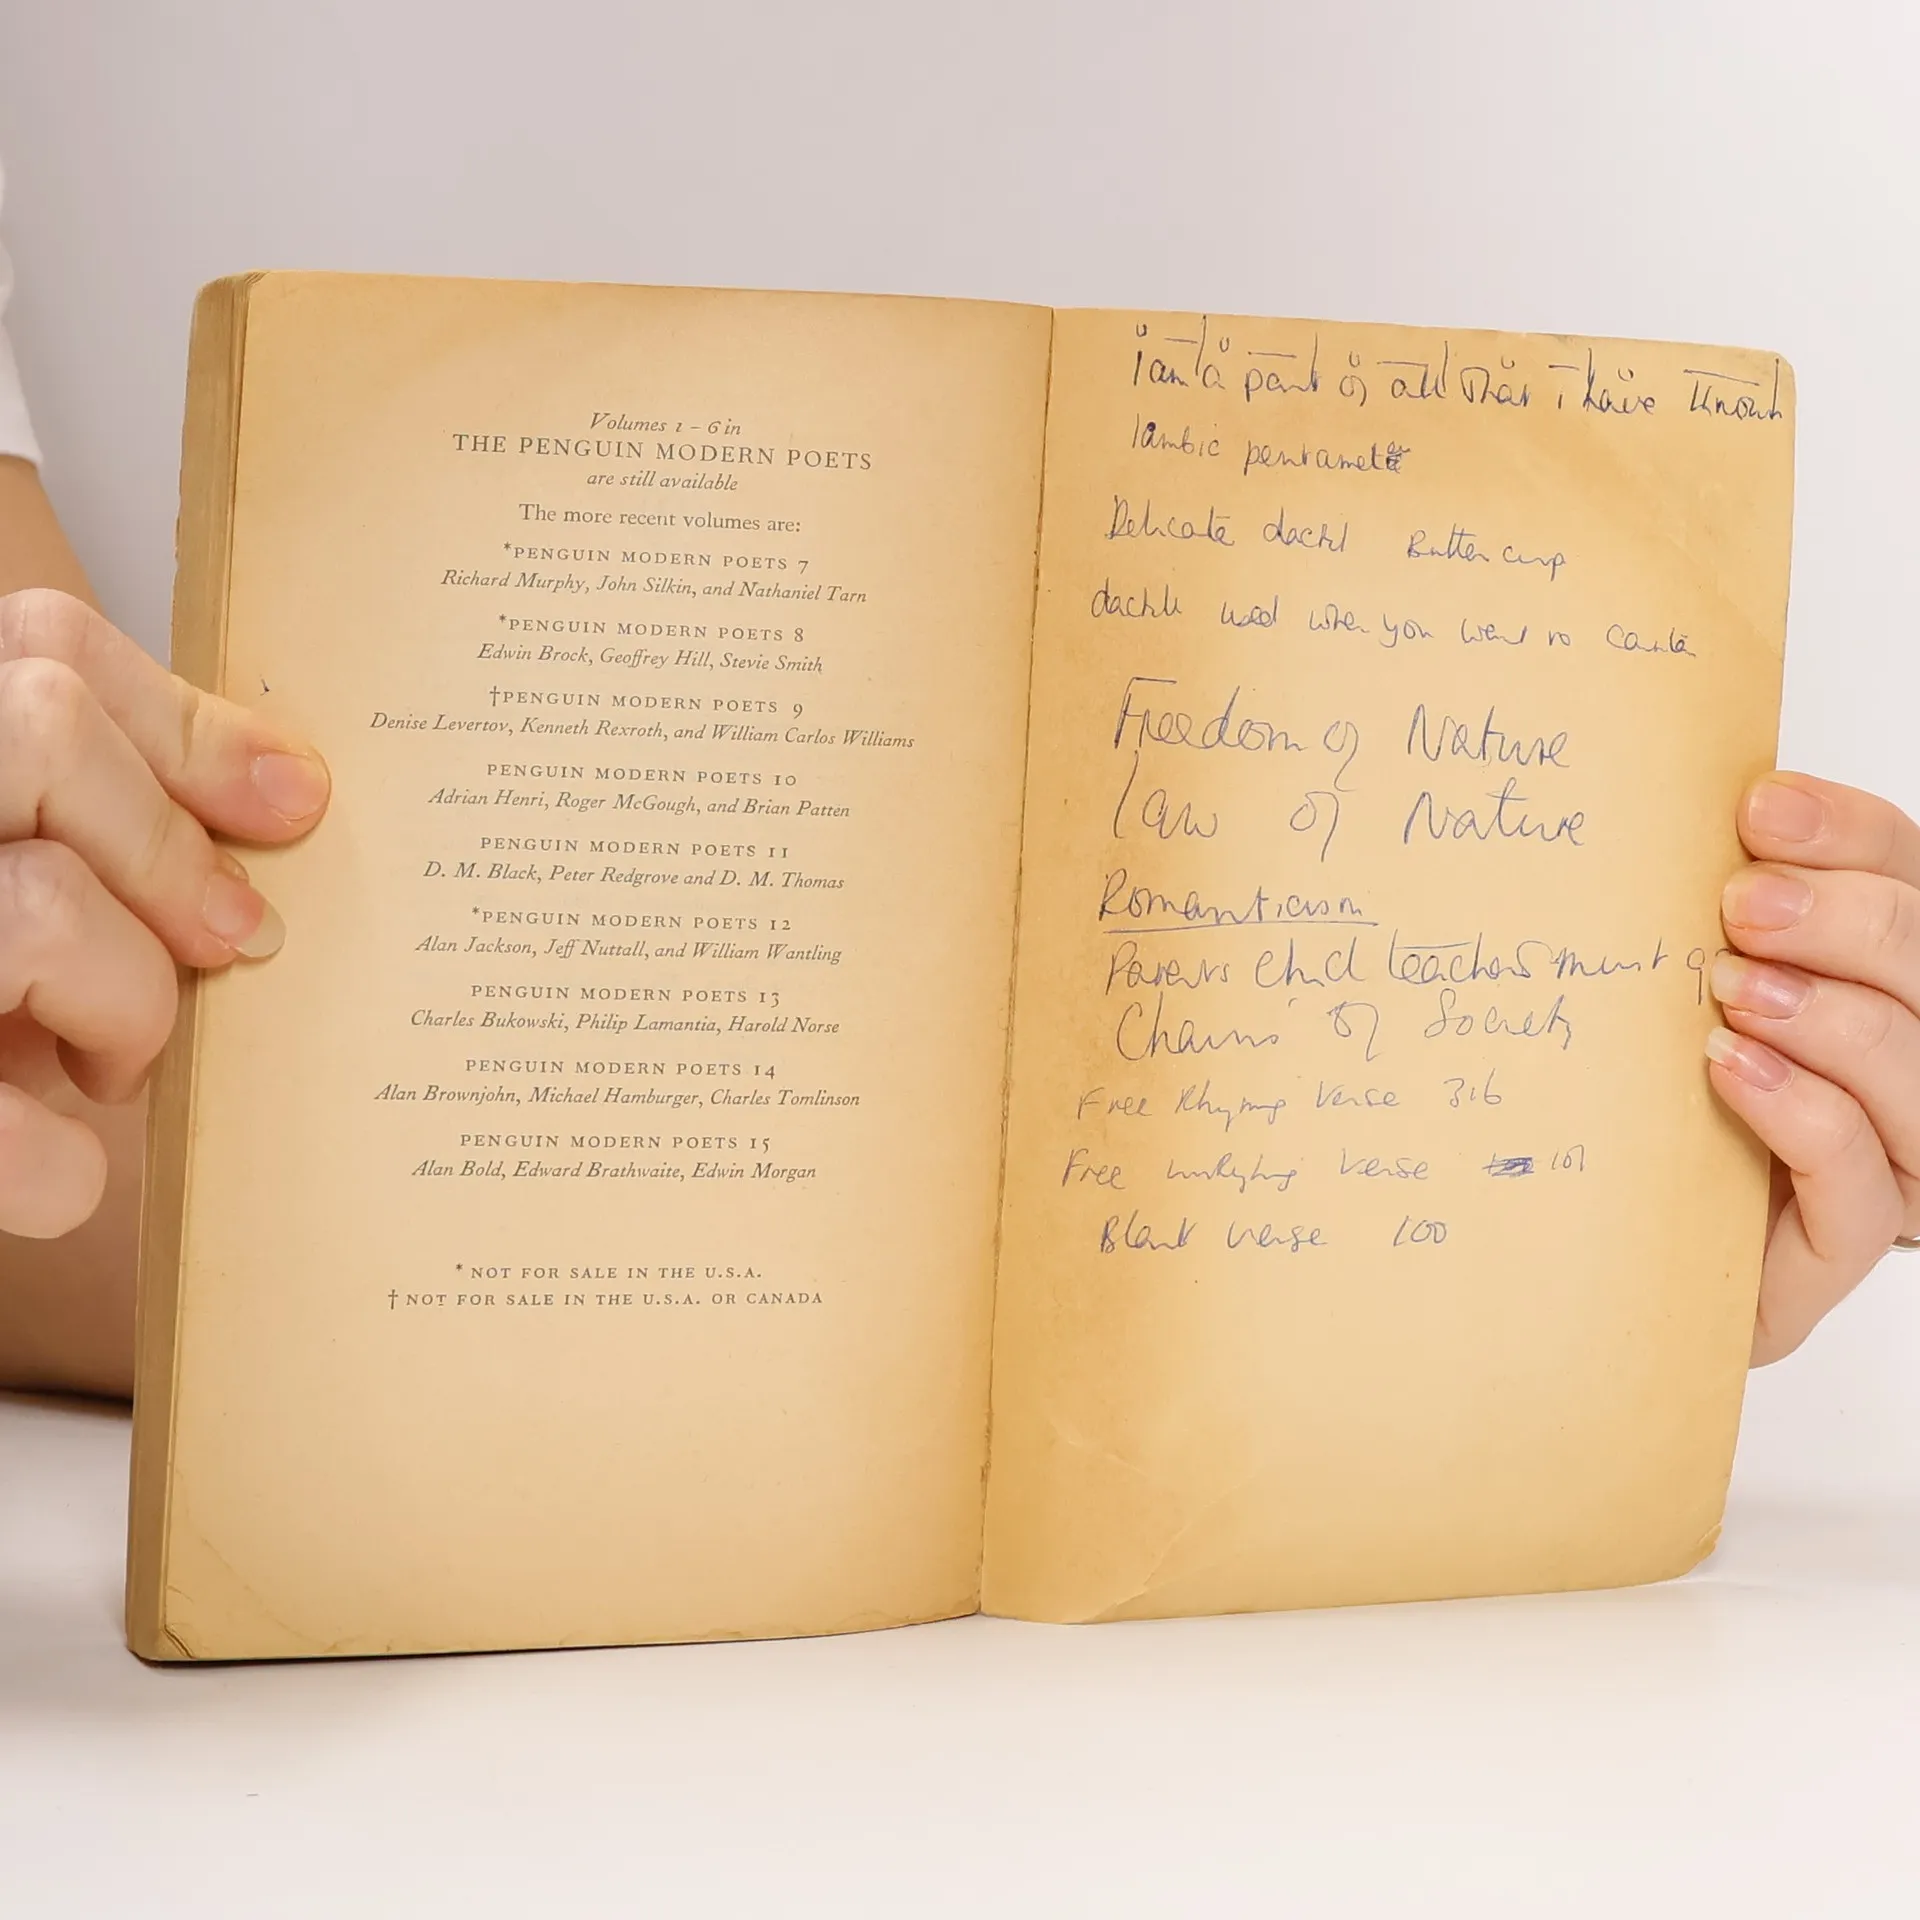 Volumes 1 – 6 in
THE PENGUIN MODERN POETS
are still available
The more recent volumes are:
*PENGUIN MODERN POETS 7
Richard Murphy, John Silkin, and Nathaniel Tarn
*PENGUIN MODERN POETS 8
Edwin Brock, Geoffrey Hill, Stevie Smith
†PENGUIN MODERN POETS 9
Denise Levertov, Kenneth Rexroth, and William Carlos Williams
PENGUIN MODERN POETS 10
Adrian Henri, Roger McGough, and Brian Patten
PENGUIN MODERN POETS 11
D. M. Black, Peter Redgrove and D. M. Thomas
*PENGUIN MODERN POETS 12
Alan Jackson, Jeff Nuttall, and William Wantling
PENGUIN MODERN POETS 13
Charles Bukowski, Philip Lamantia, Harold Norse
PENGUIN MODERN POETS 14
Alan Brownjohn, Michael Hamburger, Charles Tomlinson
PENGUIN MODERN POETS 15
Alan Bold, Edward Brathwaite, Edwin Morgan
* NOT FOR SALE IN THE U.S.A.
† NOT FOR SALE IN THE U.S.A. OR CANADA
I am a part of all that I have
Iambic pentameter
Delicate dactyl Buttercup
used when you want to
Freedom of Nature
Law of Nature
Romanticism
Parents teachers must
Chains of Society
Free Rhyming Verse 316
Free Verse 101
Blank verse 100